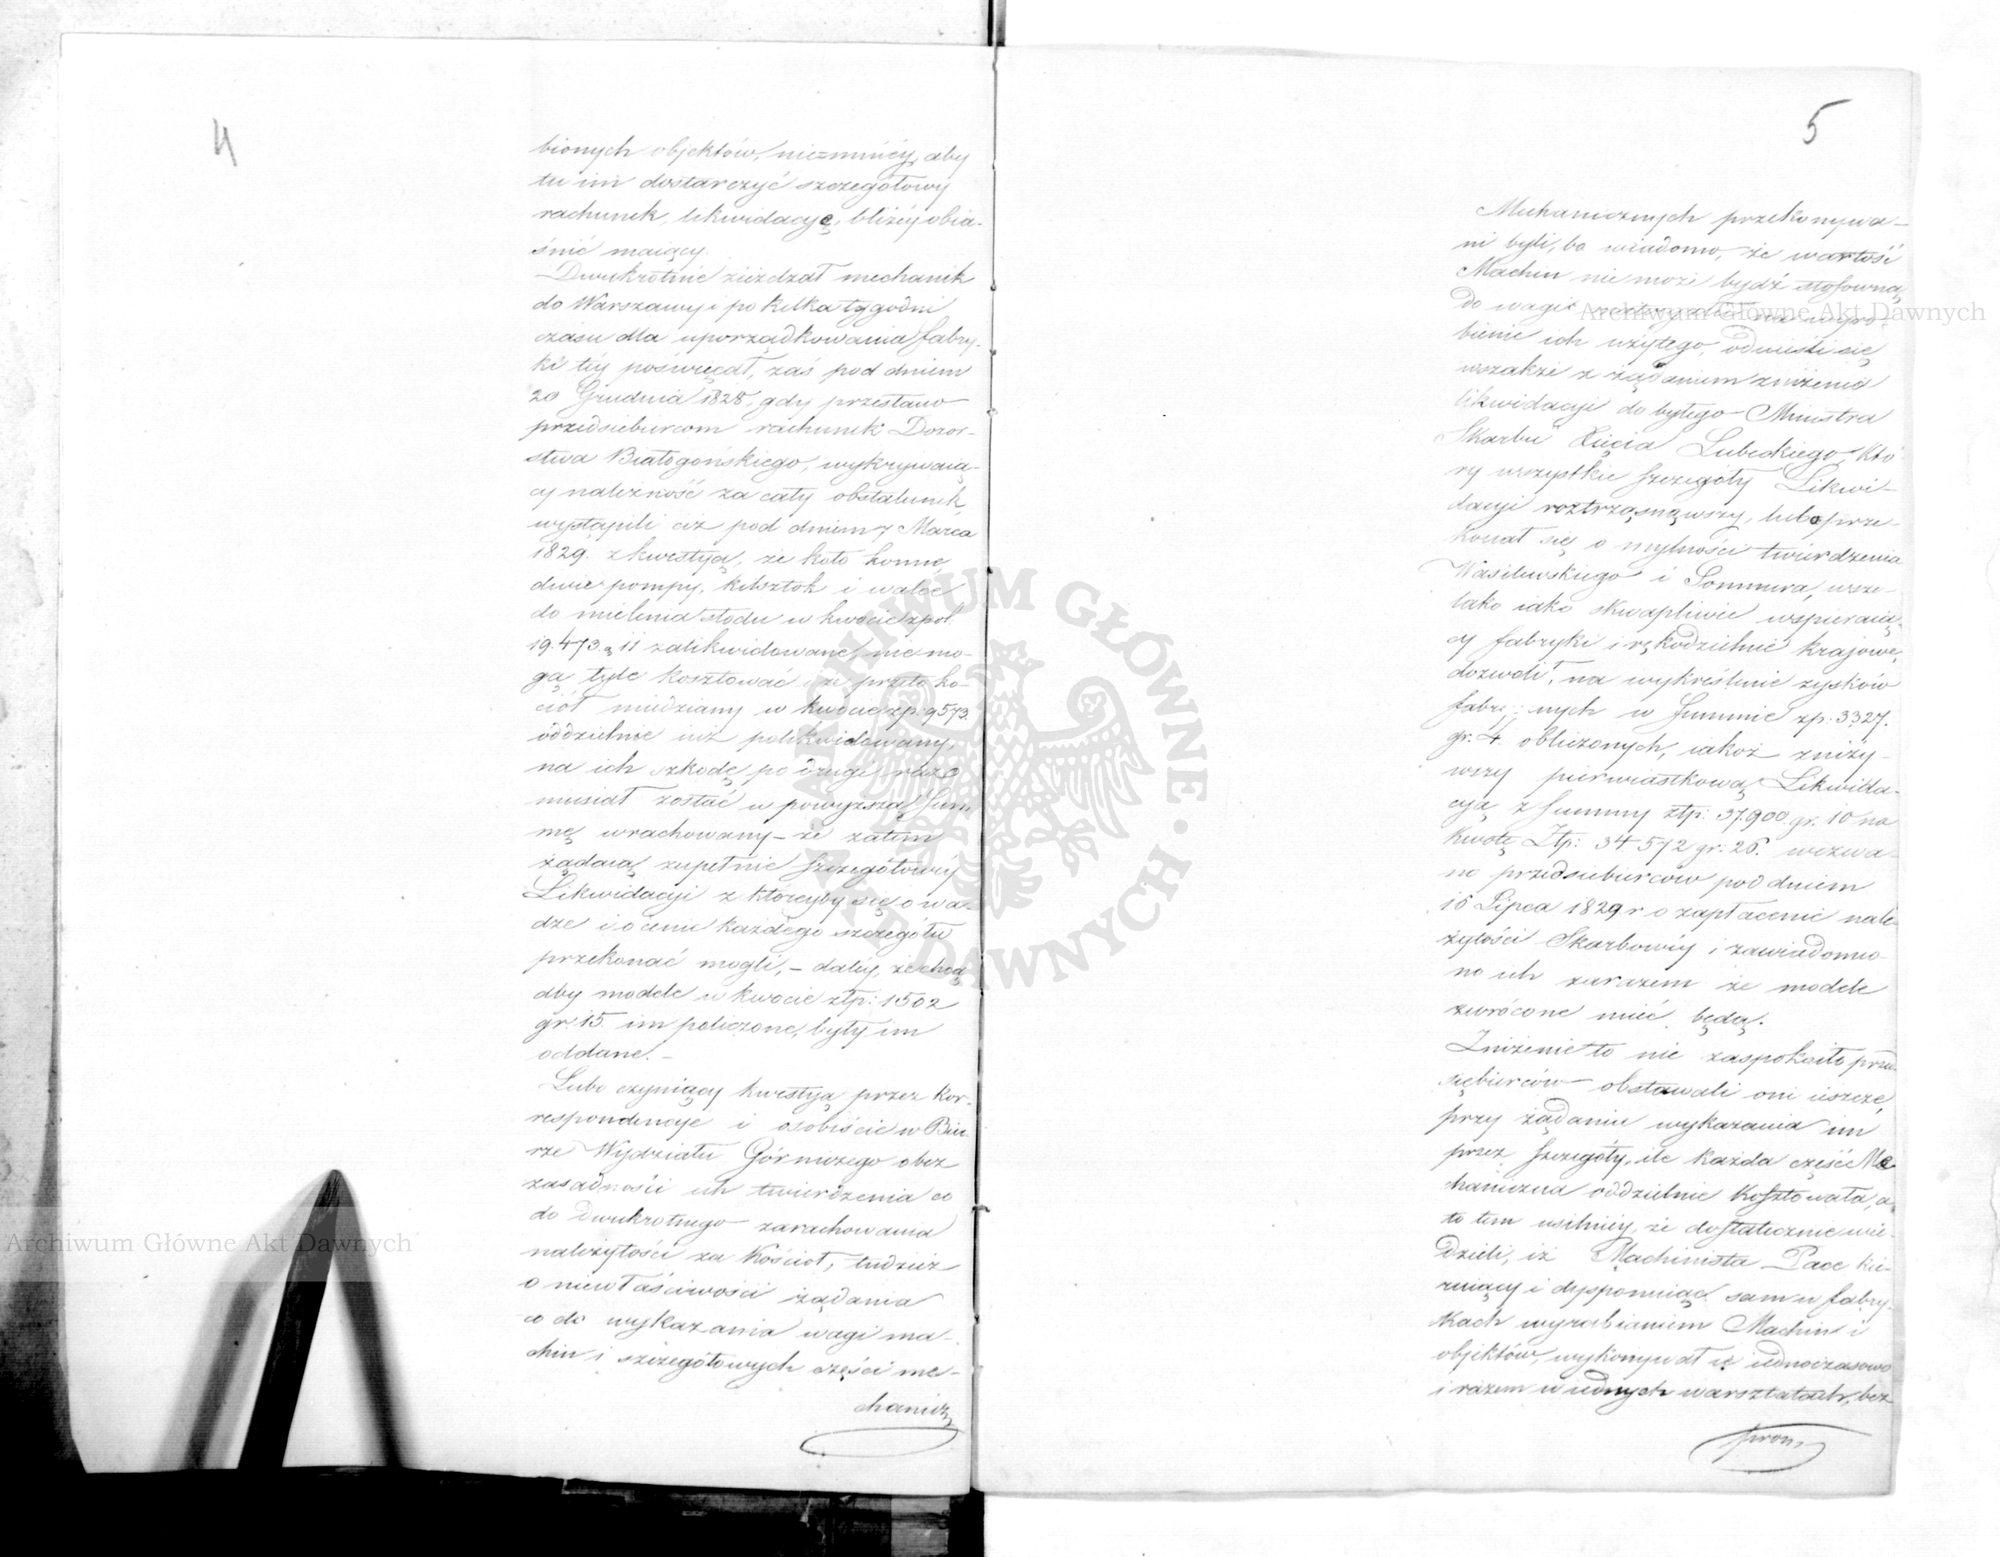 4
bionych objektów, niezmniéy, aby
tu im dostarczyć szczegółowy
rachunek, likwidacyę, bliżéy obia-
śnić maiący.
Dwukrotnie zieżdzał mechanik
do Warszawy i po kilka tygodni
czasu dla uporządkowania fabry-
ki téy poświęcał, zaś pod dniem
20 Grudnia 1828, gdy przesłano
przedsiebiercom rachunek Dozor-
stwa Białogońskiego, wykrywaią-
cy należność za cały obstalunek,
wystąpili ciż pod dniem 7 Marca
1829. z kwestyą, że koło konne,
dwie pompy, kelsztok i walce
do mielenia słodu w kwocie zpol.
19.473. 11 zalikwidowane, nie mo-
gą tyle kosztować i że przeto ko-
cioł miedziany w kwocie zp: 9573.
oddzielnie iuż polikwidowany,
na ich szkodę po drugi raz
musiał zostać w powyższą Sum
mę wrachowany – że zatem
żądaią zupełnie szczegółowéy
Likwidacyi z któreyby się o wa-
dze i o cenie każdego szczegółu
przekonać mogli, – daléy, że chcą
aby modele w kwocie złp: 1502
gr. 15. im policzone, były im
oddane. –
Lubo czyniący kwestyą przez kor-
respondencye i osobiście w Biu-
rze Wydziału Górniczego o bez
zasadności ich twierdzenia co
do dwukrotnego zarachowania
należytości za Kościoł, tudzież
o niewłaściwości żądania
co do wykazania wagi ma-
chin i szczegółowych części me-
chanicz
5
Mechanicznych przekonywa-
ni byli, bo wiadomo, że wartość
Machin nie może bydź stosowną
do wagi na wyro-
bienie ich użytego, odnieśli się
wszakże z żądaniem zniżenia
likwidacyi do byłego Ministra
Skarbu Xięcia Lubeckiego, któ
ry wszystkie szczegóły Likwi-
dacyi roztrząsnąwszy, lubo prze-
konał się o mylności twierdzenia
Wasilewskiego i Sommera, wsze-
lako iako skwapliwie wspieraią-
cy fabryki i rękodzielnie krajowe,
dozwolił, na wykreślenie zysków
fabry nych w Summie zp: 3327.
gr: 4. obliczonych, iakoż zniży-
wszy pierwiastkową Likwida-
cyą z Summy złp: 37.900. gr. 10 na
kwotę Złp: 34 572 gr: 26. wezwa-
no przedsiebierców pod dniem
16 Lipca 1829 r o zapłacenie nale-
żytości Skarbowéy i zawiadomio-
no ich zarazem że modele
zwrócone mieć będą.
Zniżenie to nie zaspokoiło przed
siębierców obstawali oni ieszcze,
przy żądaniu wykazania im
przez szczegóły, ile każda część Me
chanizna oddzielnie kosztowała, a
to tem usilniéy, że dostatecznie wie-
dzieli, iż Machinista Pace kie-
ruiący i dysponuiąc sam w fabry-
kach wyrabianiem Machin i
objektów, wykonywał ie iednoczasowo
i razem w iednych warsztatach, bez